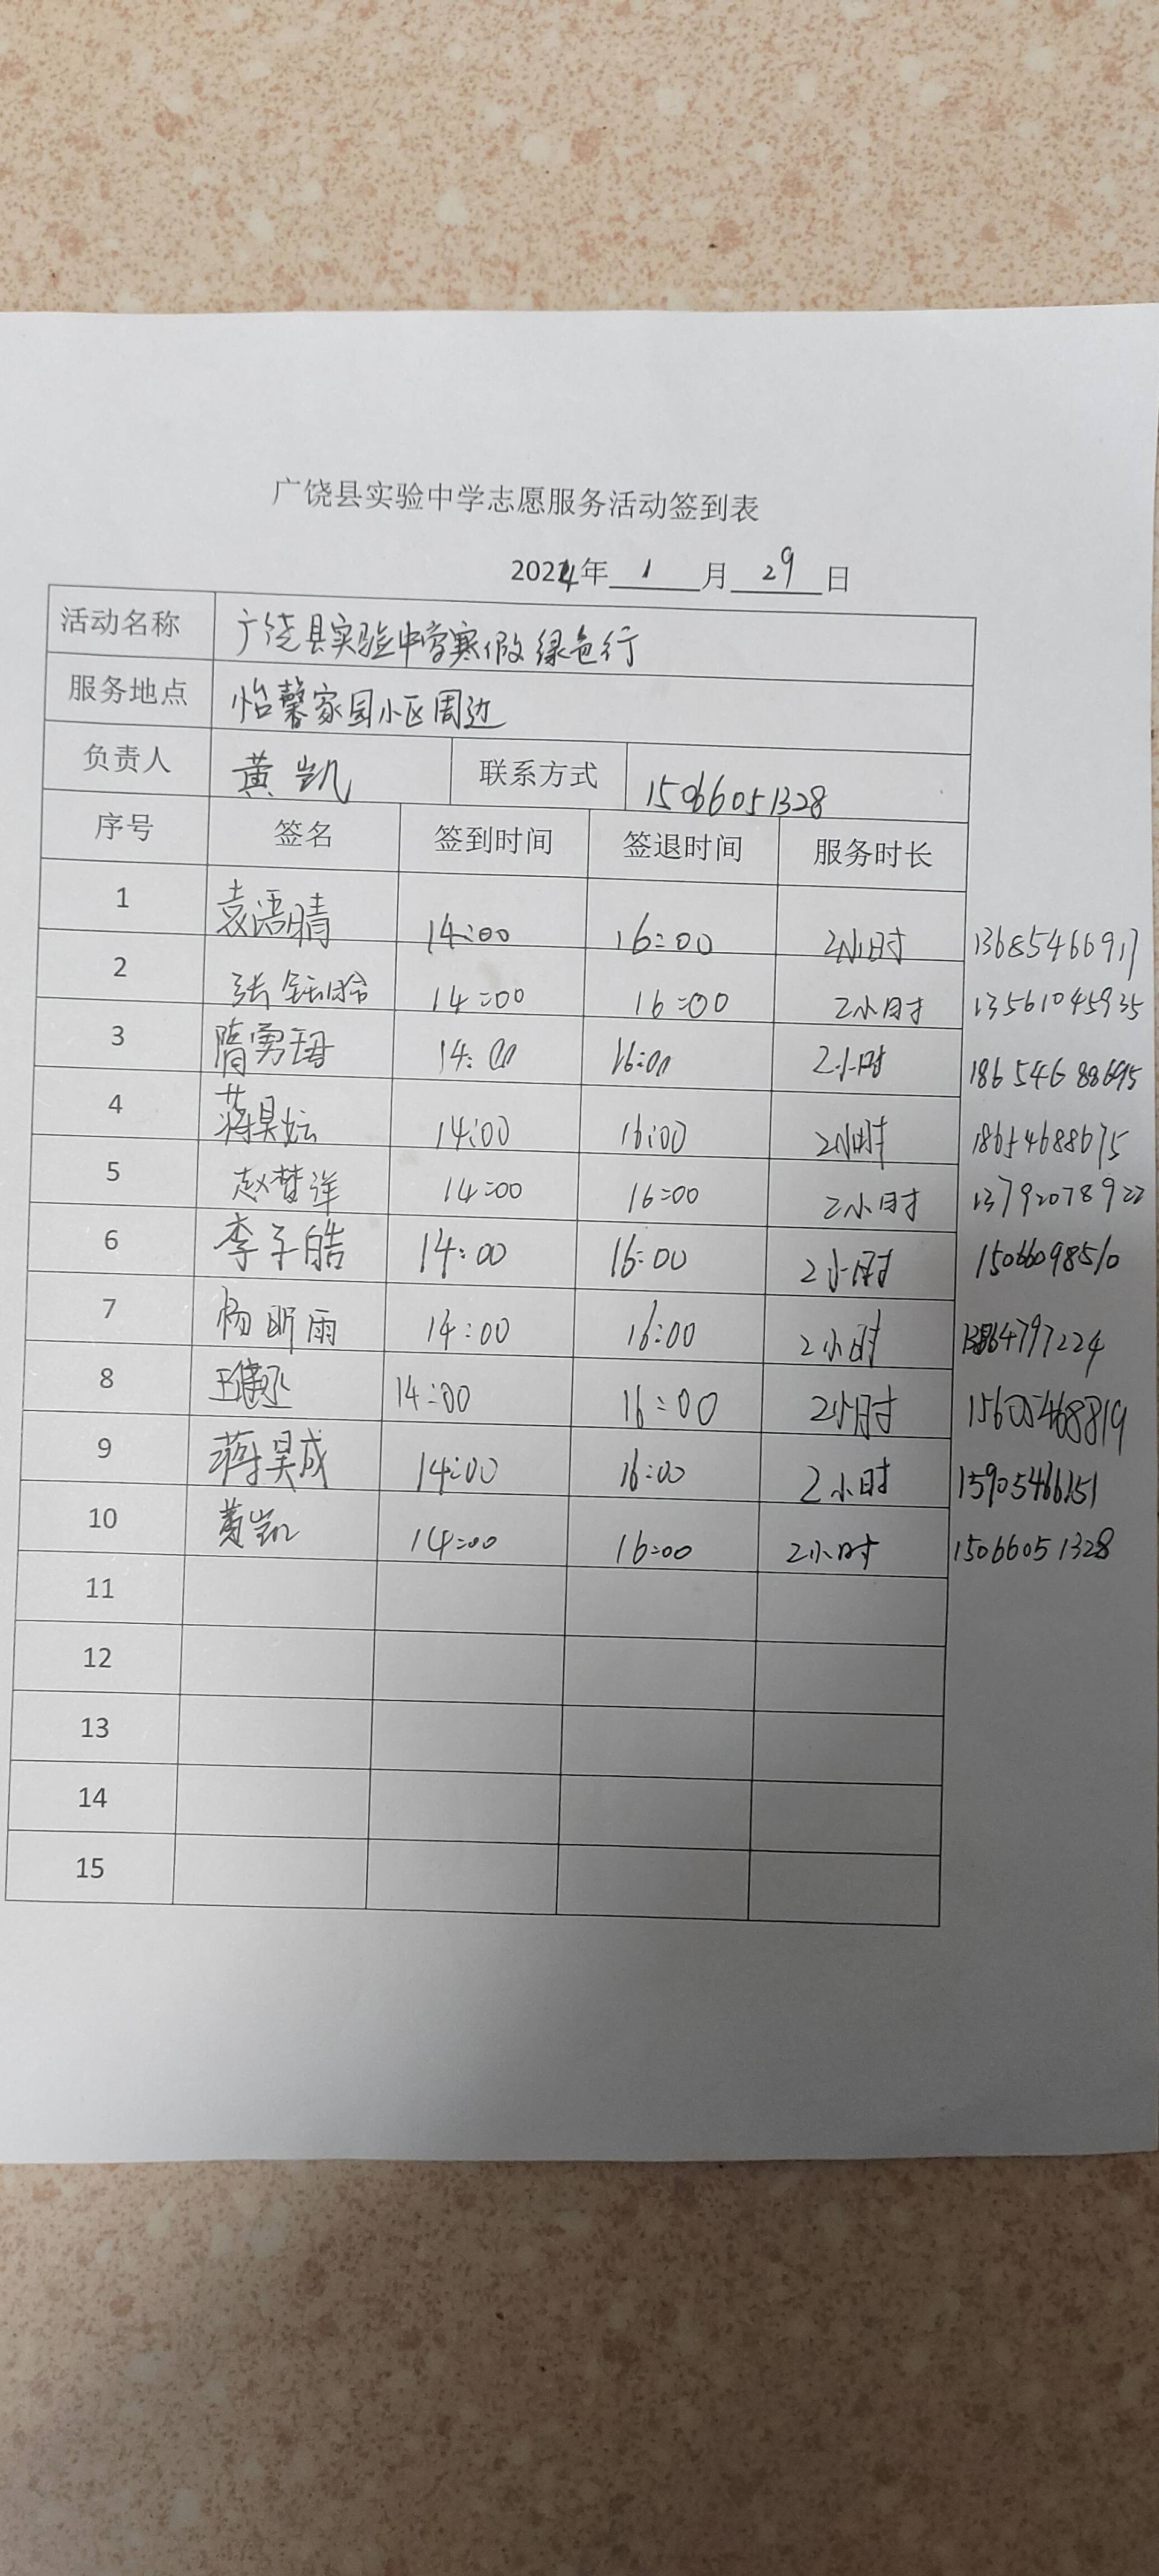 广饶县实验中学志愿服务活动签到表
2024年 1 月 29 日
活动名称 广饶县实验中学寒假绿色行
服务地点 怡馨家园小区周边
负责人 黄凯 联系方式 15066051328
序号 签名 签到时间 签退时间 服务时长
1 袁语晴 14:00 16:00 2小时 13685466917
2 张 14:00 16:00 2小时 13561045935
3 隋 14:00 16:00 2小时 18654688695
4 蒋昊妘 14:00 16:00 2小时 18654688675
5 赵梦洋 14:00 16:00 2小时 13792078922
6 李子皓 14:00 16:00 2小时 15066098510
7 杨昕雨 14:00 16:00 2小时
8 王继丞 14:00 16:00 2小时 15605468819
9 蒋昊成 14:00 16:00 2小时 15905466151
10 黄凯 14:00 16:00 2小时 15066051328
11
12
13
14
15